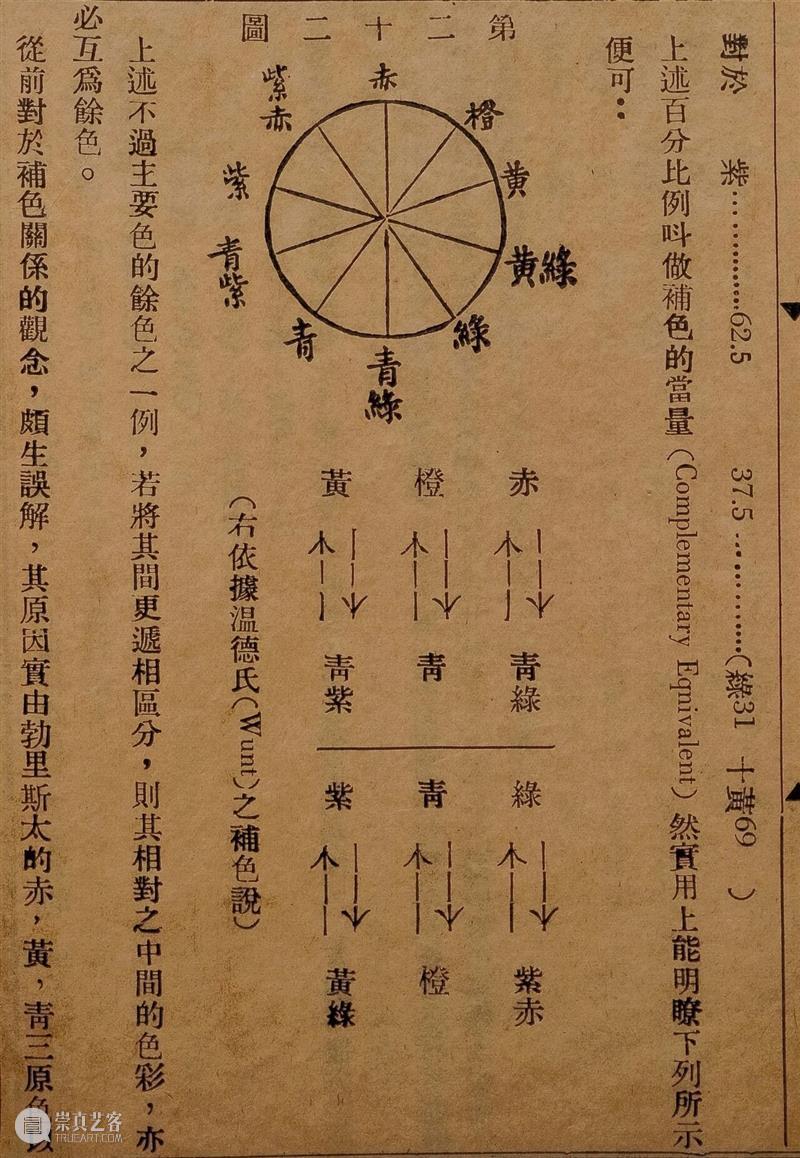 對於　紫……………62.5　37.5……………（綠31　十黃69　）
上述百分比例呌做補色的當量（Complementary Eqnivalent）然實用上能明瞭下列所示
便可：
赤　青綠　綠　紫赤
橙　青　青　橙
黃　青紫　紫　黃綠
（右依據温德氏（Wunt）之補色說）
第二十二圖
赤
橙
黃
黃綠
綠
青綠
青
青紫
紫
紫赤
上述不過主要色的餘色之一例，若將其間更遞相區分，則其相對之中間的色彩，亦
必互爲餘色。
從前對於補色關係的觀念，頗生誤解，其原因實由勃里斯太的赤，黃，靑三原色
崇真艺客
TRUEART.COM